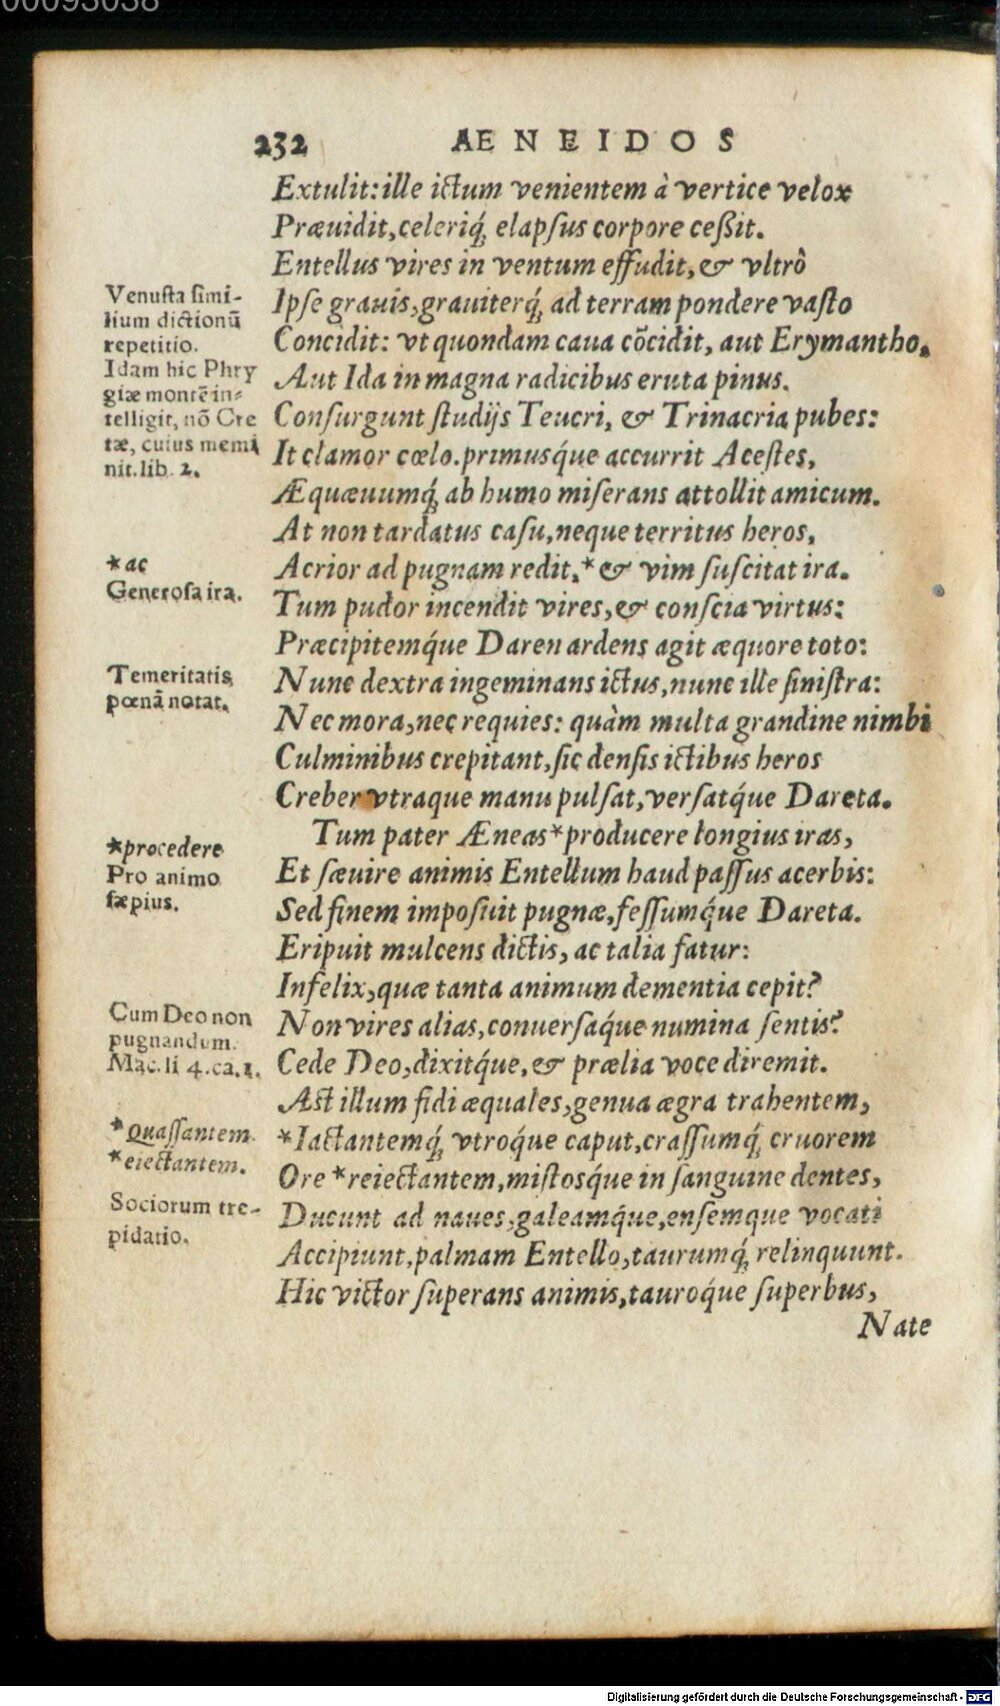 00093038
232 AENEIDOS
Extulit: ille ictum venientem à vertice velox
Præuidit, celeriq́; elapsus corpore ceßit.
Entellus vires in ventum effudit, & vltrò
Ipse grauis, grauiterq́; ad terram pondere vasto
Concidit: vt quondam caua cõcidit, aut Erymantho,
Aut Ida in magna radicibus eruta pinus.
Consurgunt studijs Teucri, & Trinacria pubes:
It clamor cœlo. primusq́ue accurrit Acestes,
Æquæuumq́; ab humo miserans attollit amicum.
At non tardatus casu, neque territus heros,
Acrior ad pugnam redit, * & vim suscitat ira.
Tum pudor incendit vires, & conscia virtus:
Præcipitemq́ue Daren ardens agit æquore toto:
Nunc dextra ingeminans ictus, nunc ille sinistra:
Nec mora, nec requies: quàm multa grandine nimbi
Culminibus crepitant, sic densis ictibus heros
Creber vtraque manu pulsat, versatq́ue Dareta.
Tum pater Æneas * producere longius iras,
Et sæuire animis Entellum haud passus acerbis:
Sed finem imposuit pugnæ, fessumq́ue Dareta.
Eripuit mulcens dictis, ac talia fatur:
Infelix, quæ tanta animum dementia cepit?
Non vires alias, conuersaq́ue numina sentis?
Cede Deo, dixitq́ue, & prælia voce diremit.
Ast illum fidi æquales, genua ægra trahentem,
*Iactantemq́; vtroq́ue caput, crassumq́; cruorem
Ore * reiectantem, mistosq́ue in sanguine dentes,
Ducunt ad naues, galeamq́ue, ensemque vocati
Accipiunt, palmam Entello, taurumq́; relinquunt.
Hic victor superans animis, tauroq́ue superbus,
Nate
Venusta simi-
lium dictionũ
repetitio.
Idam hic Phry
giæ montẽ in-
telligit, nõ Cre
tæ, cuius memi
nit. lib. 2.
*ac
Generosa ira.
Temeritatis
pœnã notat.
*procedere
Pro animo
sæpius.
Cum Deo non
pugnandum.
Mac. li 4. ca. 1.
*quassantem
*eiectantem.
Sociorum tre-
pidatio.
Digitalisierung gefördert durch die Deutsche Forschungsgemeinschaft - DFG